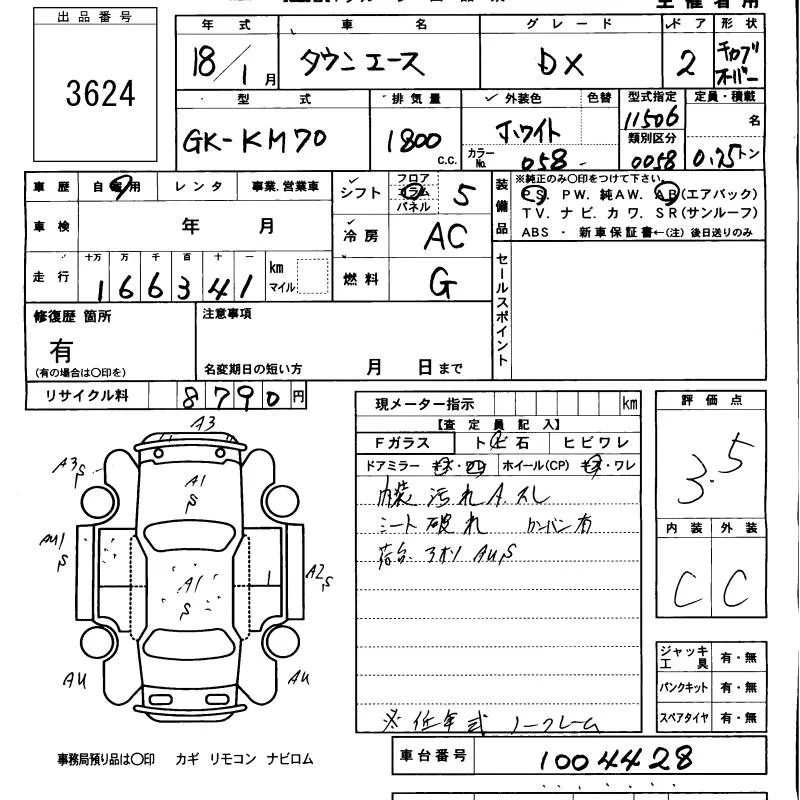 主催者用
出品番号
3624
年式 車名 グレード ドア 形状
18/1月 タウンエース DX 2
型式 排気量 外装色 色替 型式指定 定員・積載
GK-KM70 1800 C.C. ホワイト 11506 名
カラーNo. 058 類別区分 0058 0.75トン
車歴 自家用 レンタ 事業.営業車
車検 年 月
走行 十万 万 千 百 十 一
166341 km マイル
シフト フロア コラム パネル 5
冷房 AC
燃料 G
装備品 ※純正のみ〇印をつけて下さい。
PS. PW. 純AW. AB(エアバック)
TV. ナビ. カワ. SR(サンルーフ)
ABS ・ 新車保証書←(注) 後日送りのみ
セールスポイント
修復歴 箇所
有
(有の場合は〇印を)
注意事項
名変期日の短い方 月 日まで
リサイクル料 8790円
現メーター指示 km
【査定員記入】
Fガラス トビ石 ヒビワレ
ドアミラー キズ・ワレ ホイール(CP) キズ・ワレ
内装 汚れ A.スレ
シート 破れ カンバン有
荷台
※低年式 ノークレーム
評価点
3.5
内装 外装
C C
ジャッキ工具 有・無
パンクキット 有・無
スペアタイヤ 有・無
A3
A3 S
A1 S
AU1 S
A1 S
A2 S
AU
AU
事務局預り品は〇印 カギ リモコン ナビロム
車台番号 1004428